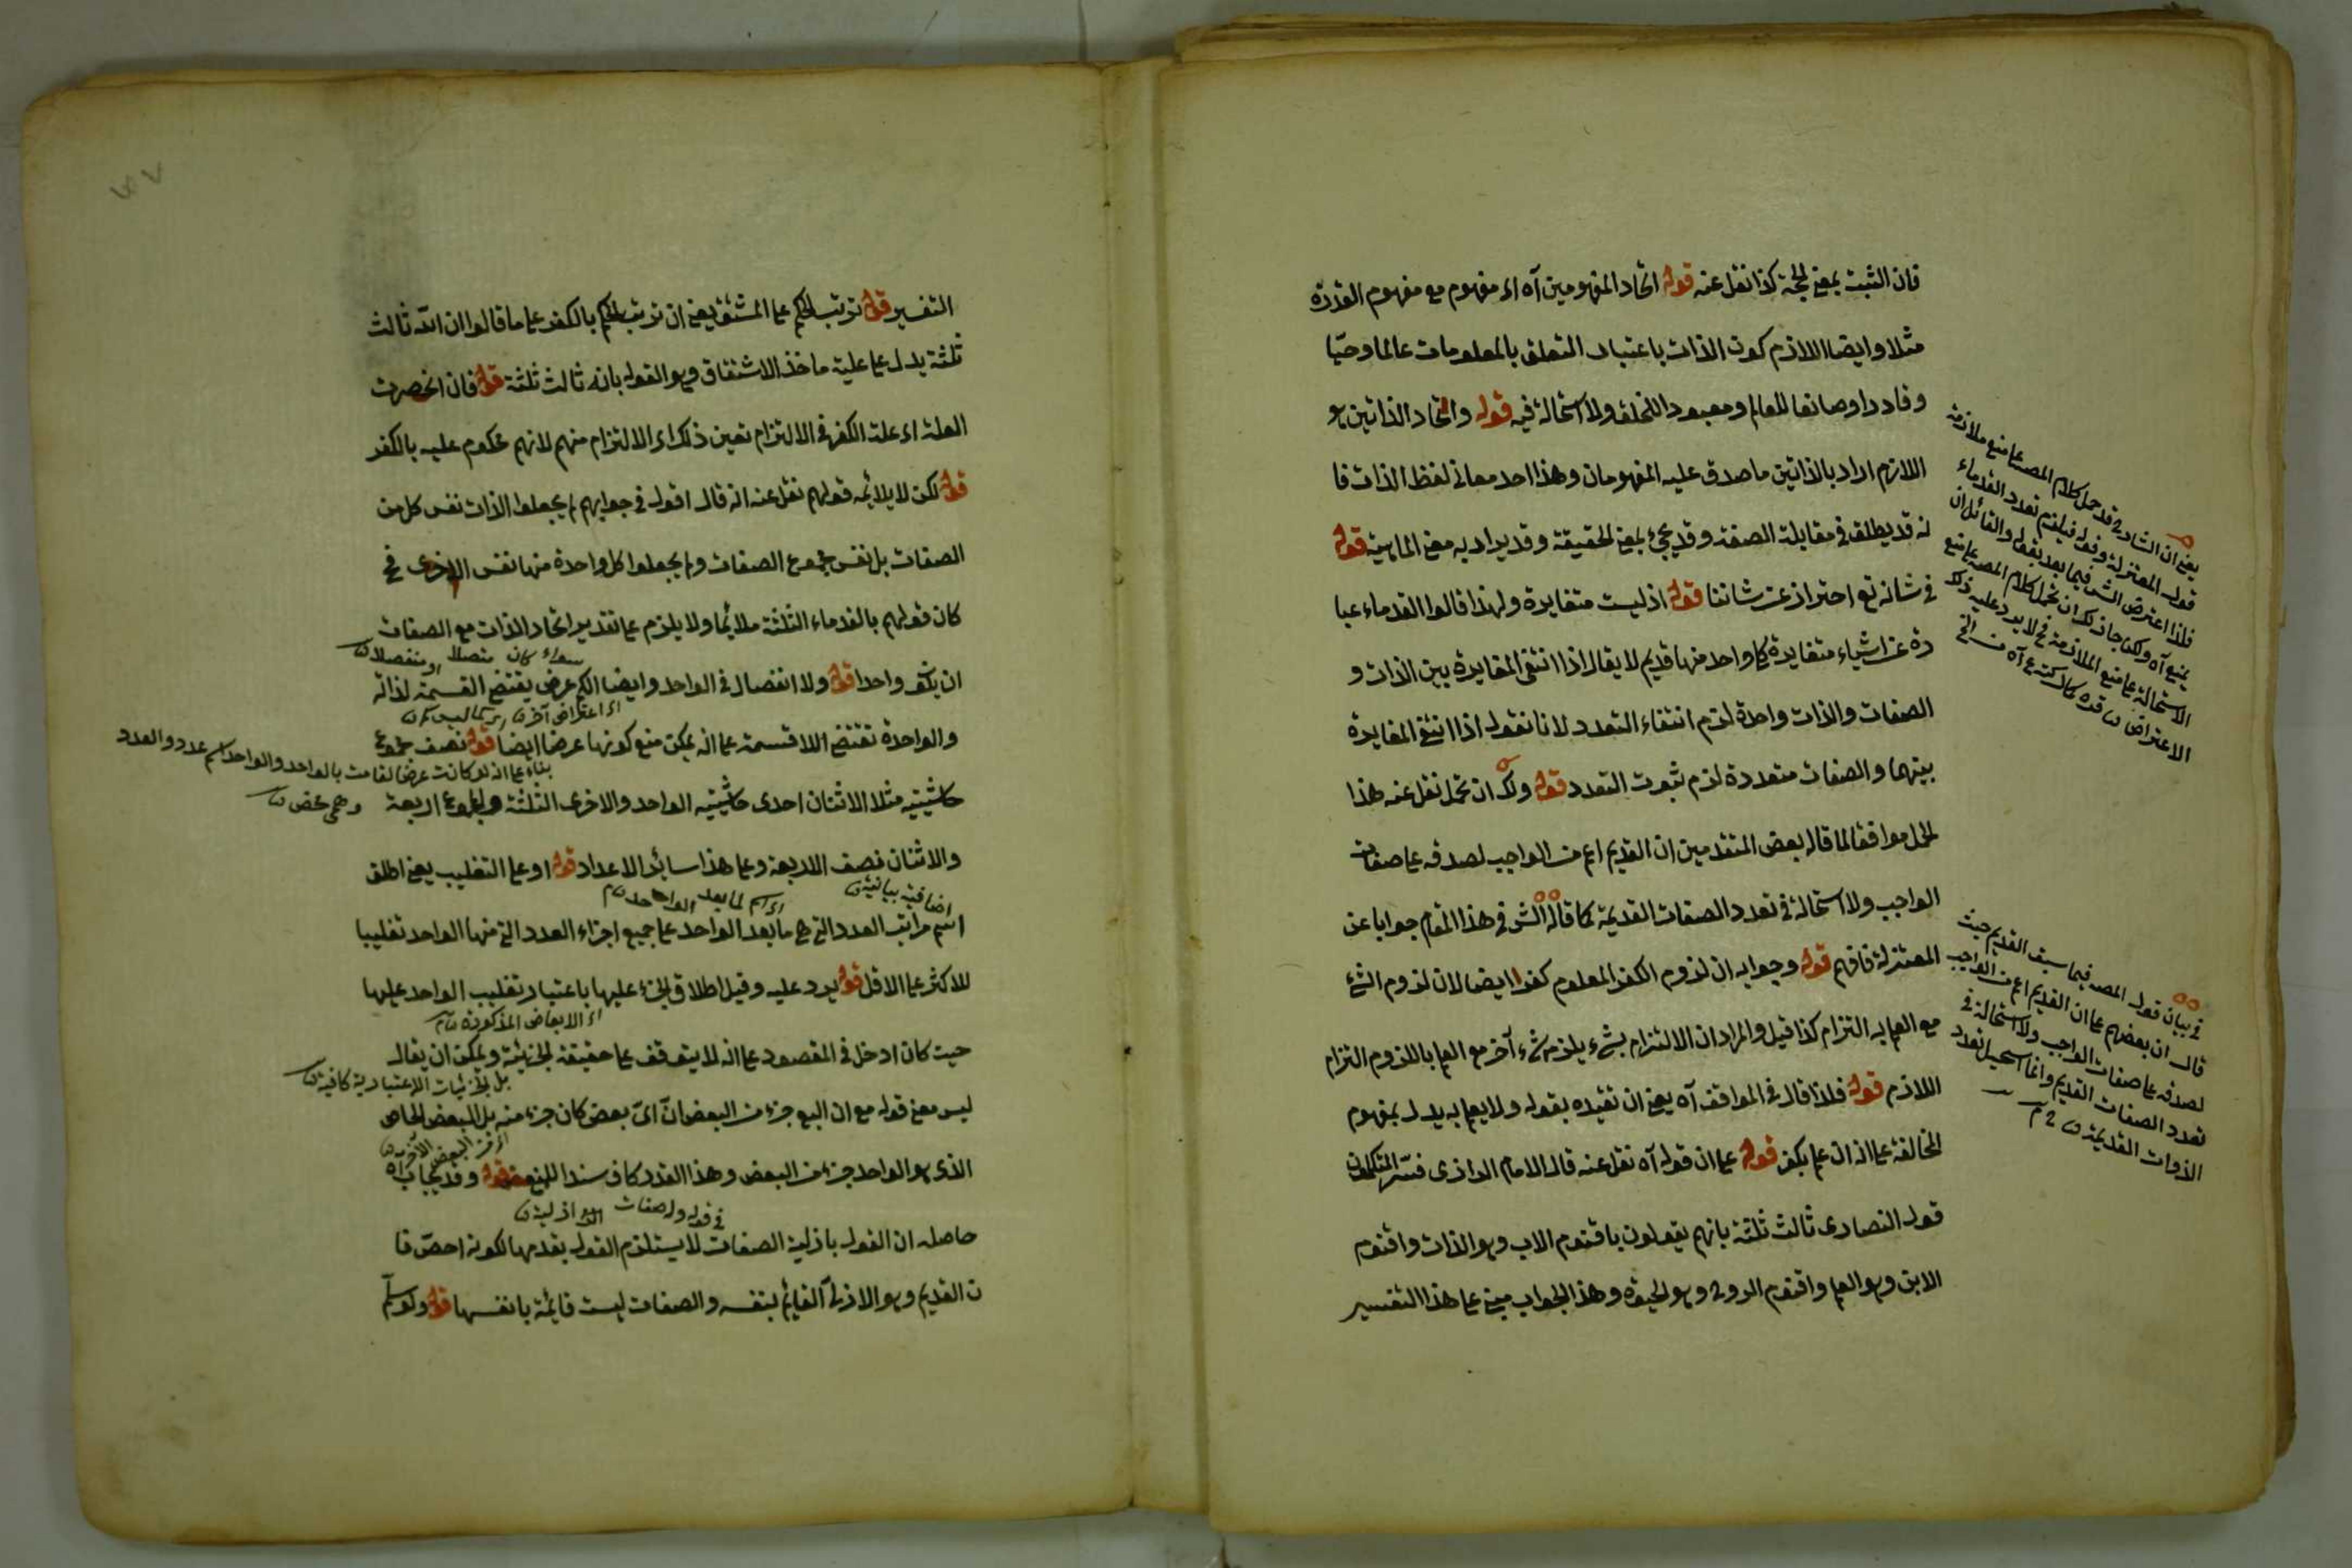 فان الثبت بمعنى الحجة كذا نقل عنه قوله اتحاد المفهومين آه اى مفهوم مع مفهوم القدرة
مثلا وايضا اللازم كون الذات باعتبار التعلق بالمعلومات عالما وحيّا
وقادرا وصانعا للعالم ومعبودا للخلق ولا استحالة فيه قوله واتحاد الذاتين هو
اللازم اراد بالذاتين ما صدق عليه المفهومان وهذا احد معانى لفظ الذات فا
نه قد يطلق فى مقابلة الصفة وقد يجئ بمعنى الحقيقة وقد يراد به معنى الماهية قوله
فى شانه تع احتراز عن شاننا قوله اذ ليست متغايرة ولهذا قالوا القدماء عبا
رة عن اشياء متغايرة كل واحد منها قديم لا يقال اذا انتفى المغايرة بين الذات و
الصفات والذات واحدة لزم انتفاء التعدد لانا نقول اذا انتفى المغايرة
بينهما والصفات متعددة لزم ثبوت التعدد قوله ولك ان تحمل نقل عنه هذا
الحمل موافقا لما قاله بعض المتقدمين ان القديم اعم من الواجب لصدقه على صفات
الواجب ولا استحالة فى تعدد الصفات القديمة كما قاله الش فى هذا المقام جوابا عن
المعتزلة فافهم قوله وجوابه ان لزوم الكفر المعلوم كفر ايضا لان لزوم الشئ
مع العلم به التزام كذا قيل والمراد ان الالتزام بشئ يلزم شئ آخر مع العلم باللزوم التزام
اللازم قوله فلذا قال فى المواقف آه يعنى ان تقيده بقوله ولا يعلم به يدل بمفهوم
المخالفة على انه ان علم يكفر قوله على ان قوله آه نقل عنه قال الامام الرازى فسّر المتكلمون
قول النصارى ثالث ثلثة بانهم يقولون باقنوم الاب وهو الذات واقنوم
الابن وهو العلم واقنوم الروح وهو الحيوة وهذا الجواب مبنى على هذا التفسير
يعنى ان الشارح قد حمل كلام المصنف على منع ملازمة
قول المعتزلة وقوله فيلزم تعدد القدماء
فلذا اعترض الش فيما بعد بقوله والقائل ان
يمنع آه ولكن جاز لك ان تحمل كلام المصنف على منع
الاستحالة على منع الملازمة فح لا يرد عليه ذلك
الاعتراض
فى بيان قول المصنف فيما سبق القديم حيث
قال ان بعضهم على ان القديم اعم من الواجب
لصدقه على صفات الواجب ولا استحالة فى
تعدد الصفات القديم وانما المستحيل تعدد
الذوات القديمة
التفسير قوله ترتب الحكم على المشتق يعنى ان ترتب الحكم بالكفر على ما قالوا ان الله ثالث
ثلثة يدل على علية ماخذ الاشتقاق وهو القول بانه ثالث ثلثة قوله فان انحصرت
العلة اى علة الكفر فى الالتزام تعين ذلك اى الالتزام منهم لانهم محكوم عليه بالكفر
قوله لكن لا يلائمه قولهم نقل عنه انه قال اقول فى جوابهم لم يجعلوا الذات نفس كل من
الصفات بل نفس مجموع الصفات ولم يجعلوا كل واحدة منها نفس الاخرى فح
كان قولهم بالقدماء الثلثة ملائما ولا يلزم على تقدير اتحاد الذات مع الصفات
سواء كان متصلا او منفصلا
ان يكف واحدا قوله ولا انفصال فى الواحد وايضا الكم عرض يقتضى القسمة لذاته
اى اعتراض آخر
والواحدة تقتضى اللاقسمة على انه يمكن منع كونها عرضا ايضا قوله نصف مجموع
بناء على انه لو كانت عرضا لقامت بالواحد والواحد اسم عدد والعدد
حاشيتيه مثلا الاثنان احدى حاشيتيه الواحد والاخرى الثلثة والمجموع اربعة
وهمى محض
والاثنان نصف الاربعة وعلى هذا سائر الاعداد قوله او على التغليب يعنى اطلق
اضافية بيانية
اى اسم لما بعد الواحد
اسم مراتب العدد التى هى ما بعد الواحد على جميع اجزاء العدد التى منها الواحد تغليبا
للاكثر على الاقل قوله يرد عليه وقيل اطلاق الجزء عليها باعتبار تغليب الواحد عليها
اى الابعاض المذكورة
حيث كان ادخل فى المقصود على انه لا يتوقف على حقيقة الجزئية ويمكن ان يقال
بل الجزئيات الاعتبارية كافية
ليس معنى قوله مع ان البع جزء من البعض انّ اىّ بعض كان جزء منه بل البعض الخاص
اى من البعض الآخر
الذى هو الواحد جزء من البعض وهذا القدر كاف سندا للمنع قوله وقد يجاب آه
فى قوله وله صفات ازلية
حاصله ان القول بازلية الصفات لا يستلزم القول بقدمها لكونه اخصّ فا
ن القديم وهو الازلى القائم بنفسه والصفات ليست قائمة بانفسها قوله ولو سلّم